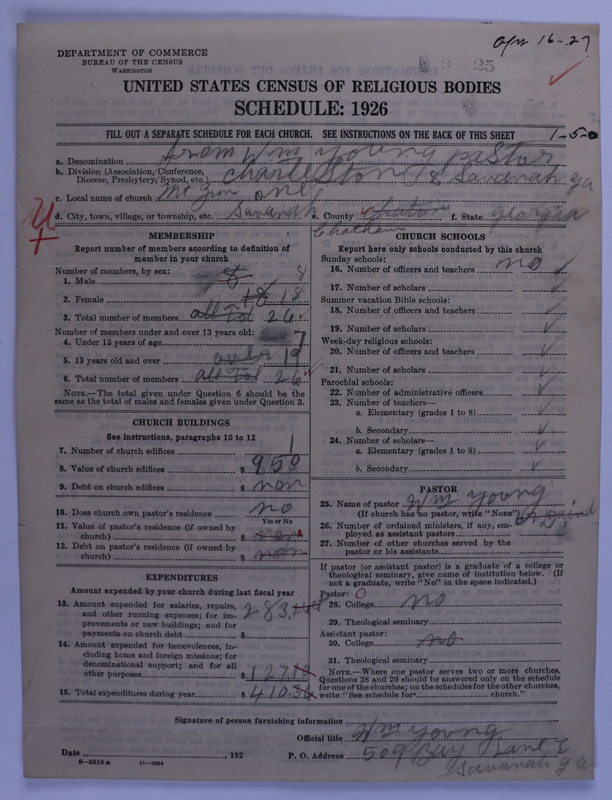 Apr 16-27
25
DEPARTMENT OF COMMERCE
BUREAU OF THE CENSUS
WASHINGTON
UNITED STATES CENSUS OF RELIGIOUS BODIES
SCHEDULE: 1926
FILL OUT A SEPARATE SCHEDULE FOR EACH CHURCH. SEE INSTRUCTIONS ON THE BACK OF THIS SHEET
1-5-0
a. Denomination from Wm Young pastor
b. Division (Association, Conference, Diocese, Presbytery, Synod, etc.) Charlestone & Savanah ga
c. Local name of church Mt Zion one
d. City, town, village, or township, etc. Savanah e. County Chatham f. State georgia
MEMBERSHIP
Report number of members according to definition of
member in your church
Number of members, by sex:
1. Male 8 8
2. Female 18 18
3. Total number of members all Tol 26
Number of members under and over 13 years old:
4. Under 13 years of age 7
5. 13 years old and over over 19
6. Total number of members all Tol 26
NOTE.—The total given under Question 6 should be the
same as the total of males and females given under Question 3.
CHURCH BUILDINGS
See instructions, paragraphs 10 to 12
7. Number of church edifices 1
8. Value of church edifices $ 950
9. Debt on church edifices $ non
10. Does church own pastor's residence? no
Yes or No
11. Value of pastor's residence (if owned by
church) $ non
12. Debt on pastor's residence (if owned by
church) $ non
EXPENDITURES
Amount expended by your church during last fiscal year
13. Amount expended for salaries, repairs,
and other running expenses; for im-
provements or new buildings; and for
payments on church debt $ 283
14. Amount expended for benevolences, in-
cluding home and foreign missions; for
denominational support; and for all
other purposes $ 127.10
15. Total expenditures during year $ 410.50
CHURCH SCHOOLS
Report here only schools conducted by this church
Sunday schools:
16. Number of officers and teachers no
17. Number of scholars
Summer vacation Bible schools:
18. Number of officers and teachers
19. Number of scholars
Week-day religious schools:
20. Number of officers and teachers
21. Number of scholars
Parochial schools:
22. Number of administrative officers
23. Number of teachers—
a. Elementary (grades 1 to 8)
b. Secondary
24. Number of scholars—
a. Elementary (grades 1 to 8)
b. Secondary
PASTOR
25. Name of pastor Wm Young
(If church has no pastor, write "None")
26. Number of ordained ministers, if any, em-
ployed as assistant pastors
27. Number of other churches served by the
pastor or his assistants
If pastor (or assistant pastor) is a graduate of a college or
theological seminary, give name of institution below. (If
not a graduate, write "No" in the space indicated.)
Pastor:
28. College no
29. Theological seminary
Assistant pastor:
30. College no
31. Theological seminary
NOTE.—Where one pastor serves two or more churches,
Questions 28 and 29 should be answered only on the schedule
for one of the churches; on the schedules for the other churches,
write "See schedule for church."
Signature of person furnishing information
Official title Wm Young
Date , 192 P. O. Address 509 Bay Lane E
Savanah ga
6-5518a 11-9354